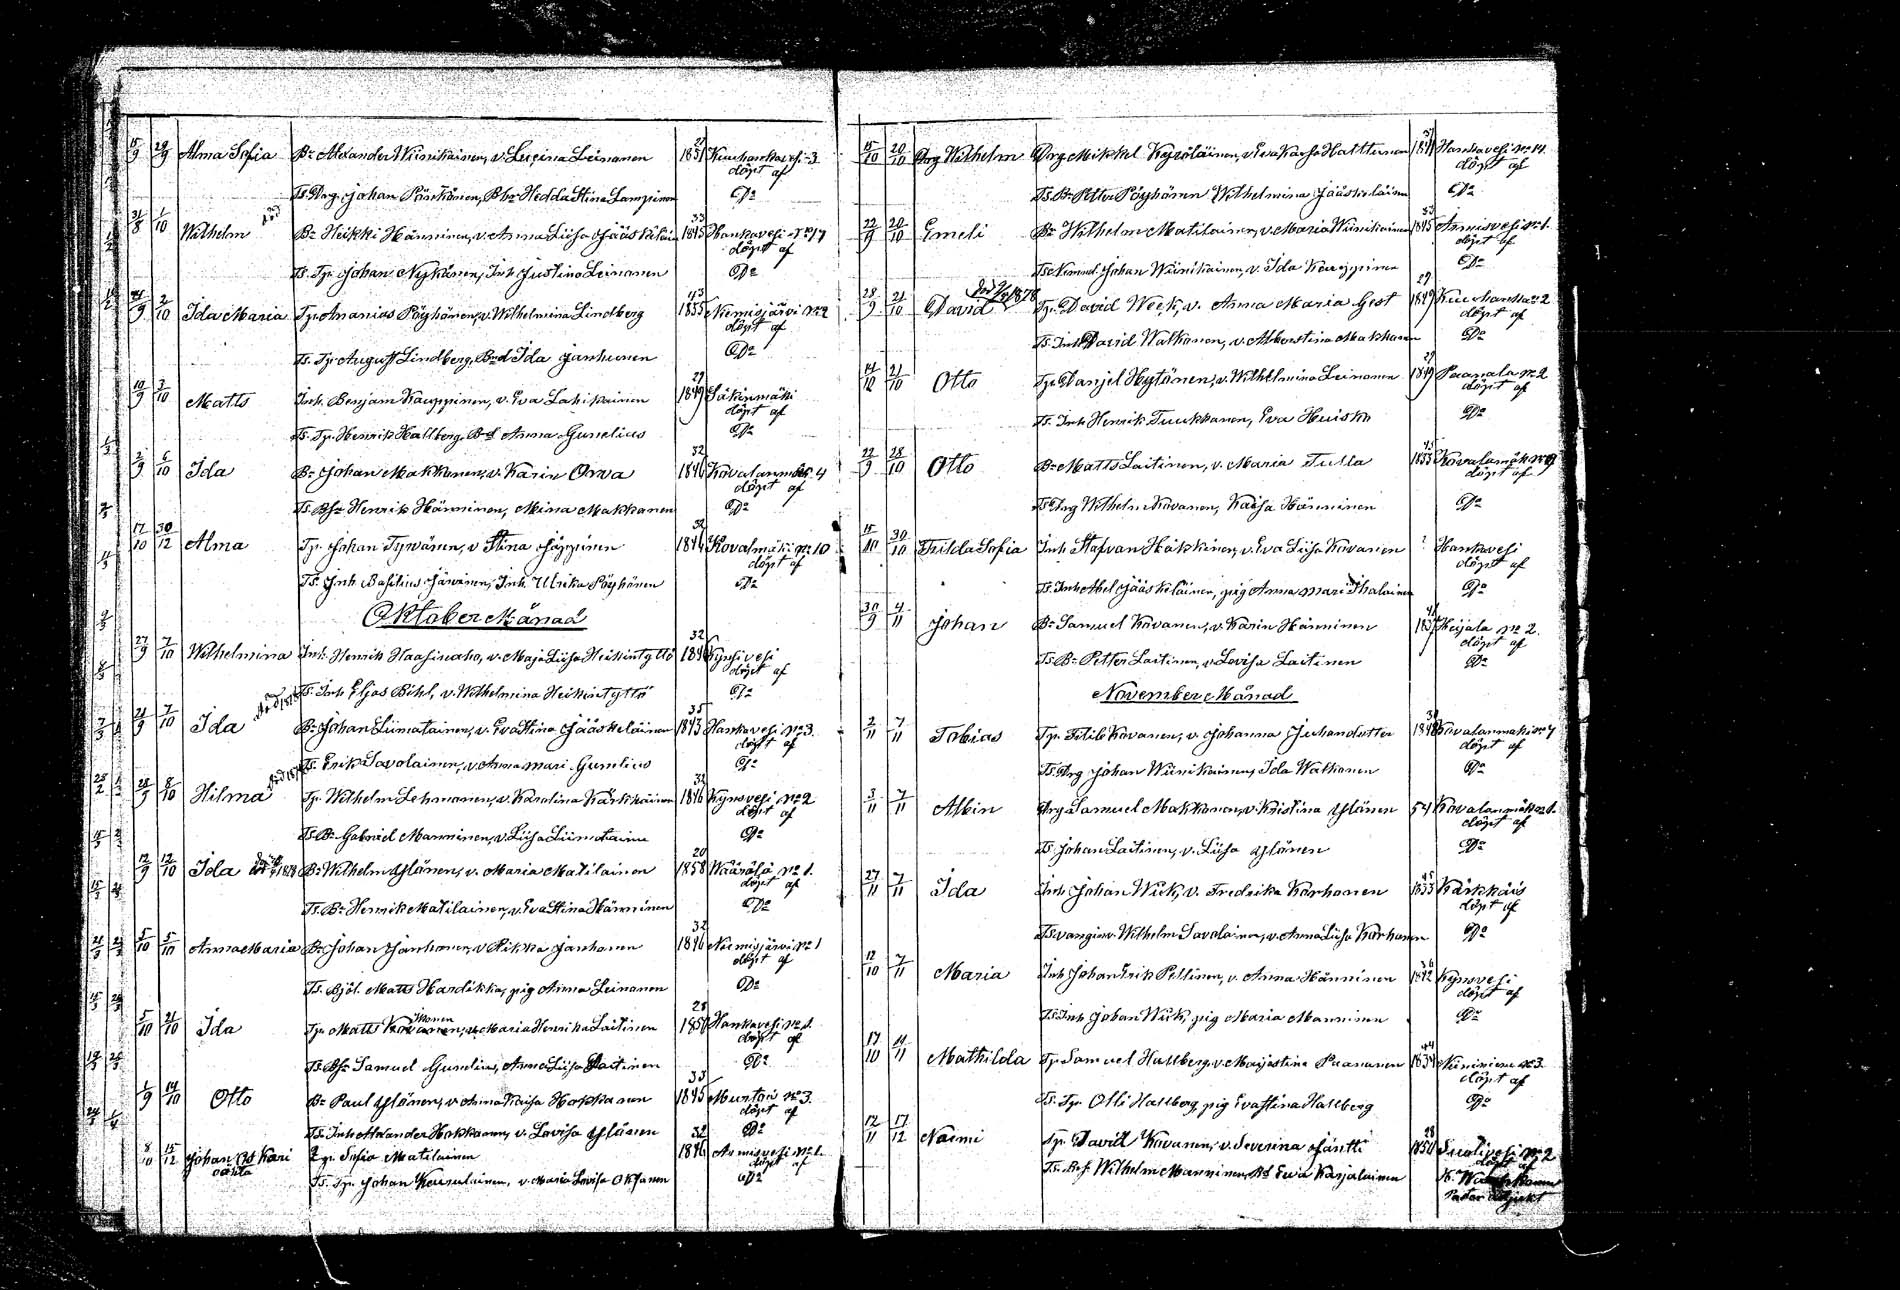 15/9 29/9 Alma Sofia Br Alexander Wiinikainen, v. Lucina Leinonen 27 1851 Kuuhankavesi 3
döpt af
Ts. Drg. Johan Pönkönen, Bhr Hedda Stina Lampinen Do
31/8 1/10 Wilhelm död Br Heikki Hänninen, v. Anna Liisa Jääskeläin 33 1845 Hankavesi No 17
döpt af
Ts. Tpr Johan Nykänen, Inh Justina Leinonen Do
21/9 2/10 Ida Maria Tpr Ananias Pöyhönen, v. Wilhelmina Lindberg 43 1835 Niemisjärvi No 2
döpt af
Ts. Tpr August Lindberg, Bd Ida Janhunen Do
10/9 3/10 Matts Inh. Benjam Kauppinen, v. Eva Lahikainen 29 1849 Säkinmäki
döpt af
Ts. Tpr. Henrik Hallberg, Bd Anna Gunelius Do
2/9 6/10 Ida Br Johan Makkonen, v. Karin Orva 32 1846 Kovalanmäki 4
döpt af
Ts. Bhr Henrik Hänninen, Mina Makkonen Do
17/10 30/12 Alma Tpr Johan Tyrvänen, v Stina Jäppinen 32 1846 Kovalmäki No 10
döpt af
Ts. Inh Basilius Järvinen, Inh. Ulrika Pöyhönen Do
Oktober Månad
27/9 7/10 Wilhelmina Inh. Henrik Haasiwaho, v. Maja Liisa Heikintyttö 32 1846 Kynsivesi
döpt af
Ts. Inh Eljas Bihl, v. Wilhelmina Heikintyttö Do
21/9 7/10 Ida Br Johan Liimatainen, v. Eva Stina Jääskeläinen 35 1843 Hankavesi No 3.
döpt af
Ts. Erik Savolainen, v. Anna Mari Gunelius Do
28/9 8/10 Hilma Tpr. Wilhelm Lehmonen, v. Karolina Kärkkäinen 32 1846 Kynsvesi No 2
döpt af
Ts. Br Gabriel Manninen, v. Liisa Liimatainen Do
12/9 12/10 Ida Br Wilhelm Ylönen, v. Maria Matilainen 20 1858 Wäärälä No 1.
döpt af
Ts. Br Henrik Matilainen, v. Eva Stina Hänninen Do
5/10 5/10 Anna Maria Br Johan Janhonen, v. Rikka Janhonen 32 1846 Niemisjärvi No 1
döpt af
Ts. Matts Hardikka, pig Anna Leinonen Do
5/10 21/10 Ida Tpr Matts Kovanen, v. Maria Henrika Laitinen 28 1850 Hankavesi No 1.
döpt af
Ts. Bhr Samuel Gunelius, Anna Liisa Laitinen Do
1/9 14/10 Otto Br Paul Ylönen, v. Anna Kaisa Hokkanen 33 1845 Muntoi No 3.
döpt af
Ts. Inh Alexander Hokkanen, v. Lovisa Ylönen Do
8/10 15/12 Johan Oskari oäkta Sofia Matilainen 32 1846 Armisvesi No 1.
döpt af
Ts. Tpr Johan Kousulainen, v. Maria Lovisa Oksanen Do
15/10 20/10 Wilhelm Drg Mikkel Kyröläinen, v Eva Kaisa Halttunen Hankavesi No 14
döpt af
Ts. Br Petter Pöyhönen Wilhelmina Jääskeläinen Do
22/9 20/10 Emeli Br Wilhelm Matilainen, v. Maria Wiinikainen 33 1845 Armisvesi No 1.
döpt af
Ts. Nemnd. Johan Wiinikainen, v. Ida Kauppinen Do
28/9 21/10 David Tpr. David Week, v. Anna Maria Gest 29 1849 Kuuhanka No 2
döpt af
Ts. Inh David Watkonen, v. Albertina Makkonen Do
14/10 21/10 Otto Tpr. Danjel Hytönen, v. Wilhelmina Leinonen 29 1849 Paanala No 2
döpt af
Ts. Inh Henrik Tuukkanen, Eva Huisko Do
22/9 28/10 Otto Br Matts Laitinen, v. Maria Tulla 45 1833 Kovalamäki No 9
döpt af
Ts. Drg Wilhelm Kovanen, Kaisa Hänninen Do
15/10 30/10 Frilda Sofia Inh Stafvan Häkkinen, v. Eva Liisa Kovanen ? Hankavesi
döpt af
Ts. Inh Abel Jääskeläinen, pig Anna Mari Ihalainen Do
30/9 4/11 Johan Br Samuel Kovanen, v. Karin Hänninen 41 1837 Heijala No 2.
döpt af
Ts. Br Petter Laitinen, v. Lovisa Laitinen Do
November Månad
2/11 7/11 Tobias Tpr. Kovanen, v. Johanna Juhandotter 30 1848 Kovalanmäki No 7
döpt af
Ts. Drg Johan Wiinikainen, Ida Watkonen Do
3/11 7/11 Albin Drg Samuel Makkonen, v. Kristina Ylönen 54 Kovalanmäki No 1.
döpt af
Ts. Johan Laitinen, v. Liisa Ylönen Do
27/11 7/11 Ida Inh Johan Wick, v. Fredrika Korhonen 45 1833 Kärkkäis
döpt af
Ts. Wilhelm Savolainen, v. Anna Liisa Korhonen Do
12/10 7/11 Maria Inh Johan Erik Peltinen, v. Anna Hänninen 36 1842 Kynsvesi
döpt af
Ts. Inh Johan Wick, pig Maria Manninen Do
17/10 11/11 Mathilda Tpr Samuel Hallberg, v. Majastina Paananen 44 1834 Niinimiem No 3.
döpt af
Ts. Tpr. Olli Hallberg, pig Eva Stina Hallberg Do
12/11 17/12 Naimi Tpr. David Kovanen, v. Severina Jäntti 28 1850 Suolivesi No 2
döpt af
Ts. Wilhelm Manninen, Bd Eva Karjalainen K.
Pastor Adjunkt